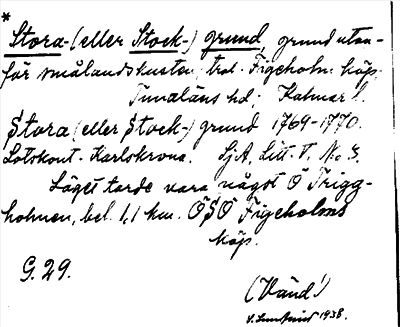 *
Stora- (eller Stock-) grund, grund utan-
för smålandskusten, trol. Figeholm köp.
Tunaläns hd; Kalmar l.
Stora (eller Stock-) grund 1769-1770.
Lotskont. Karlskrona. SjA, Litt. T. No 3.
Läget torde vara något Ö Trigg-
holmen, bel. 1,1 km. ÖSÖ Figeholms
köp.
G. 29.
(Vänd!)
1938.